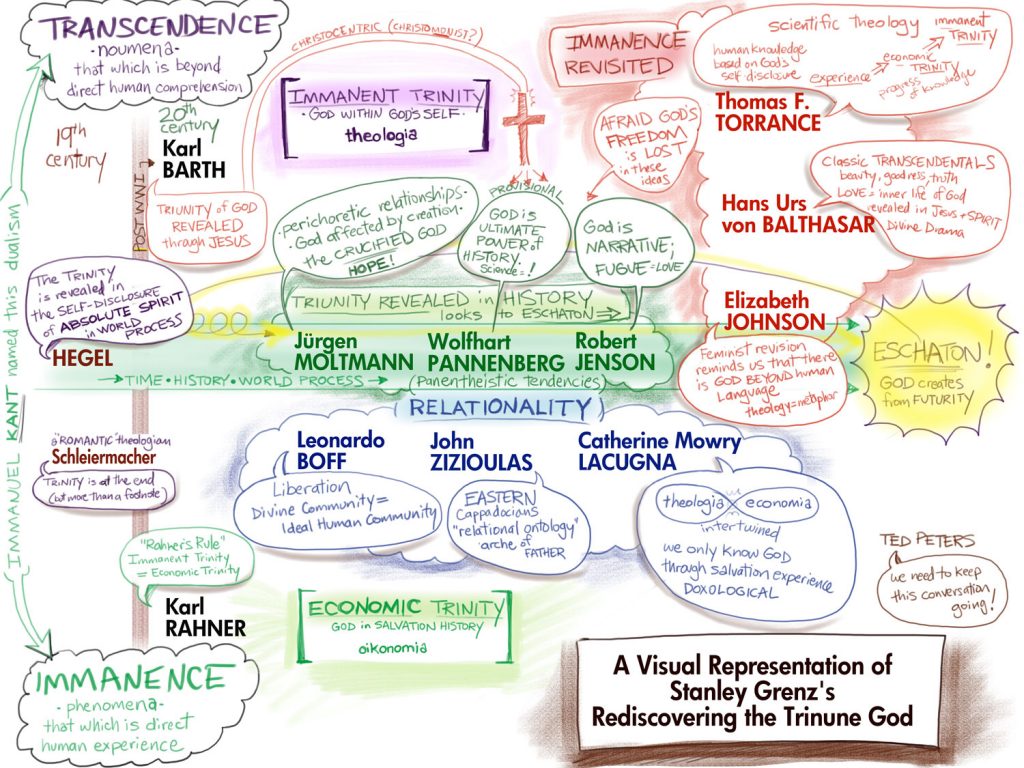 TRANSCENDENCE
-noumena-
that which is beyond
direct human comprehension
CHRISTOCENTRIC (CHRISTOMONIST?)
IMMANENT TRINITY
-GOD WITHIN GOD'S SELF-
theologia
IMMANENCE
REVISITED
scientific theology
immanent
TRINITY
human knowledge
based on God's
self-disclosure
economic
TRINITY
experience
progress
of knowledge
Thomas F.
TORRANCE
19th
century
20th
century
Karl
BARTH
POST WWI
TRIUNITY of GOD
REVEALED
through JESUS
AFRAID GOD'S
FREEDOM
is LOST
in these
ideas
Classic TRANSCENDENTALS
beauty, goodness, truth
LOVE = inner life of God
revealed in Jesus + SPIRIT
Divine Drama
Hans Urs
von BALTHASAR
-perichoretic relationships-
-God affected by creation-
the CRUCIFIED GOD
HOPE!
PROVISIONAL
GOD is
ULTIMATE
POWER of
HISTORY.
Science = !
God is
NARRATIVE;
FUGUE = LOVE
The TRINITY
is revealed in
the SELF-DISCLOSURE
of ABSOLUTE SPIRIT
in WORLD
PROCESS
HEGEL
TRIUNITY REVEALED in HISTORY
looks to ESCHATON
Jürgen
MOLTMANN
Wolfhart
PANNENBERG
Robert
JENSON
TIME • HISTORY • WORLD PROCESS
(panentheistic tendencies)
Elizabeth
JOHNSON
Feminist revision
reminds us that there
is GOD BEYOND human
Language
theology = metaphor
ESCHATON!
GOD creates
from FUTURITY
RELATIONALITY
Leonardo
BOFF
John
ZIZIOULAS
Catherine Mowry
LACUGNA
Liberation
Divine Community =
Ideal Human Community
EASTERN
Cappadocians
"relational ontology"
arche of
FATHER
theologia economia
intertwined
we only know GOD
through salvation experience
DOXOLOGICAL
a "ROMANTIC" theologian
Schleiermacher
TRINITY is at the end
(but more than a footnote)
IMMANUEL KANT named this dualism
"Rahner's Rule"
Immanent Trinity
= Economic Trinity
Karl
RAHNER
ECONOMIC TRINITY
GOD in SALVATION HISTORY
oikonomia
TED PETERS
we need to keep
this conversation
going!
IMMANENCE
-phenomena-
that which is direct
human experience
A Visual Representation of
Stanley Grenz's
Rediscovering the Trinune God